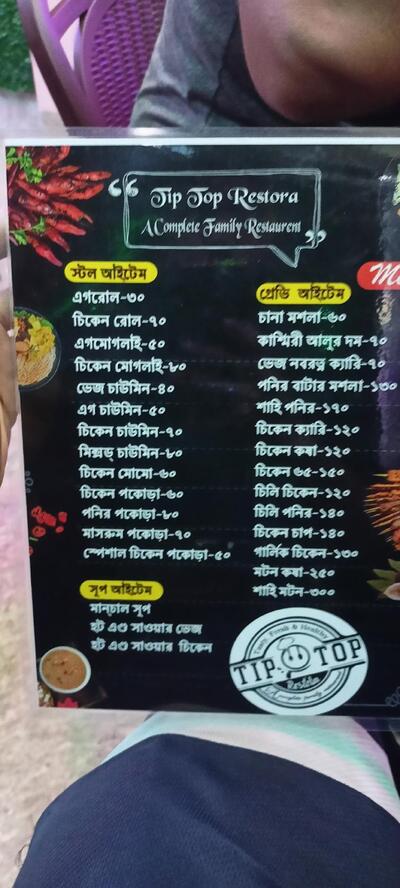 Tip Top Restora
A Complete Family Restaurent
স্টল আইটেম
এগরোল-৩০
চিকেন রোল-৭০
এগমোগলাই-৫০
চিকেন মোগলাই-৮০
ভেজ চাউমিন-৪০
এগ চাউমিন-৫০
চিকেন চাউমিন-৭০
মিক্সড্ চাউমিন-৮০
চিকেন মোমো-৬০
চিকেন পকোড়া-৬০
পনির পকোড়া-৮০
মাসরুম পকোড়া-৭০
স্পেশাল চিকেন পকোড়া-৫০
সুপ আইটেম
মান্চাল সুপ
হট এণ্ড সাওয়ার ভেজ
হট এণ্ড সাওয়ার চিকেন
গ্রেভি আইটেম
চানা মশলা-৬০
কাশ্মিরী আলুর দম-৭০
ভেজ নবরত্ন ক্যারি-৭০
পনির বাটার মশলা-১৩০
শাহি পনির-১৭০
চিকেন ক্যারি-১২০
চিকেন কষা-১২০
চিকেন ৬৫-১৫০
চিলি চিকেন-১২০
চিলি পনির-১৪০
চিকেন চাপ-১৪০
গার্লিক চিকেন-১৩০
মটন কষা-২৫০
শাহি মটন-৩০০
Tasty, Fresh & Healthy
TIP TOP
Restora